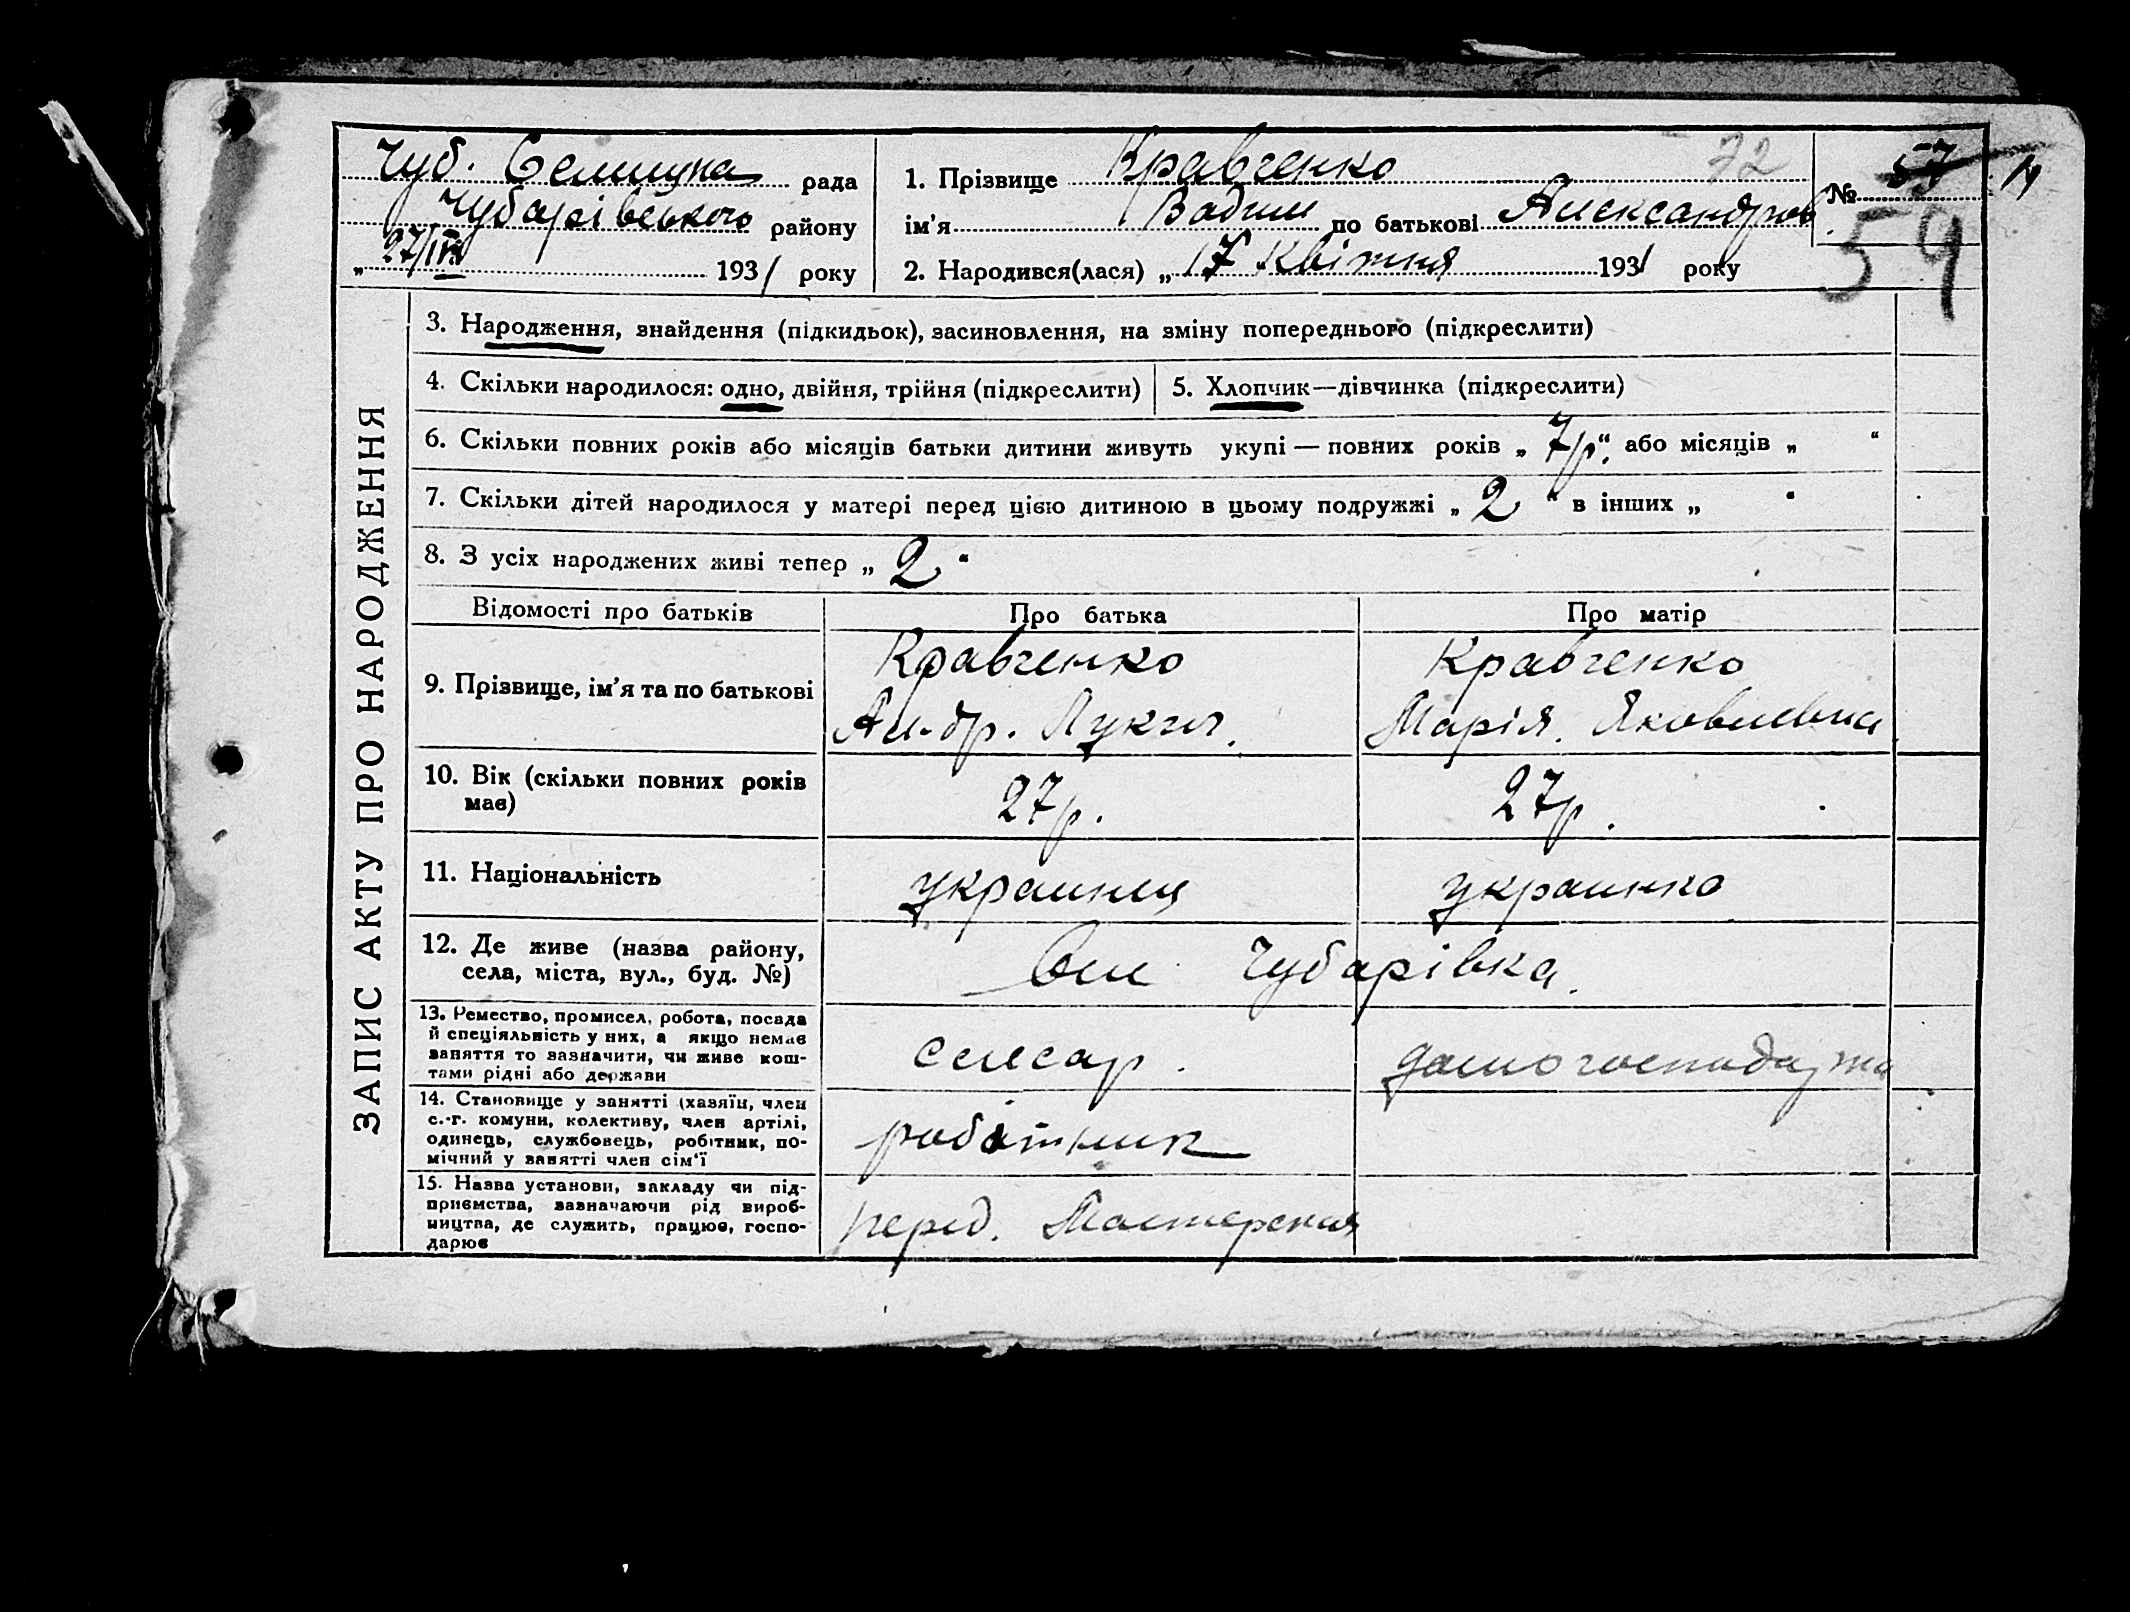 Чуб. Селищна рада
Чубарівського району
„27/IV 1931 року
1. Прізвище Кравченко 72
ім’я Вадим по батькові Александров
2. Народився(лася) „17 Квітня 1931 року
№ 57 14
59
ЗАПИС АКТУ ПРО НАРОДЖЕННЯ
3. Народження, знайдення (підкидьок), засиновлення, на зміну попереднього (підкреслити)
4. Скільки народилося: одно, двійня, трійня (підкреслити)
5. Хлопчик—дівчинка (підкреслити)
6. Скільки повних років або місяців батьки дитини живуть укупі — повних років „7р“, або місяців „ “
7. Скільки дітей народилося у матері перед цією дитиною в цьому подружжі „2“ в інших „ “
8. З усіх народжених живі тепер „2“
Відомості про батьків Про батька Про матір
9. Прізвище, ім’я та по батькові
Кравченко
Ал-др. Лукич.
Кравченко
Марія. Яковлевна
10. Вік (скільки повних років
має)
27р. 27р.
11. Національність украинец украинка
12. Де живе (назва району,
села, міста, вул., буд. №)
Чубарівка.
13. Ремество, промисел, робота, посада
й спеціяльність у них, а якщо немає
заняття то зазначити, чи живе кош-
тами рідні або держави
слесар. домогосподарка
14. Становище у занятті (хазяїн, член
с.-г. комуни, колективу, член артілі,
одинець, службовець, робітник, по-
мічний у занятті член сім‘ї
робітник
15. Назва установи, закладу чи під-
приємства, зазначаючи рід вироб-
ництва, де служить, працює, госпо-
дарює
Мастерская